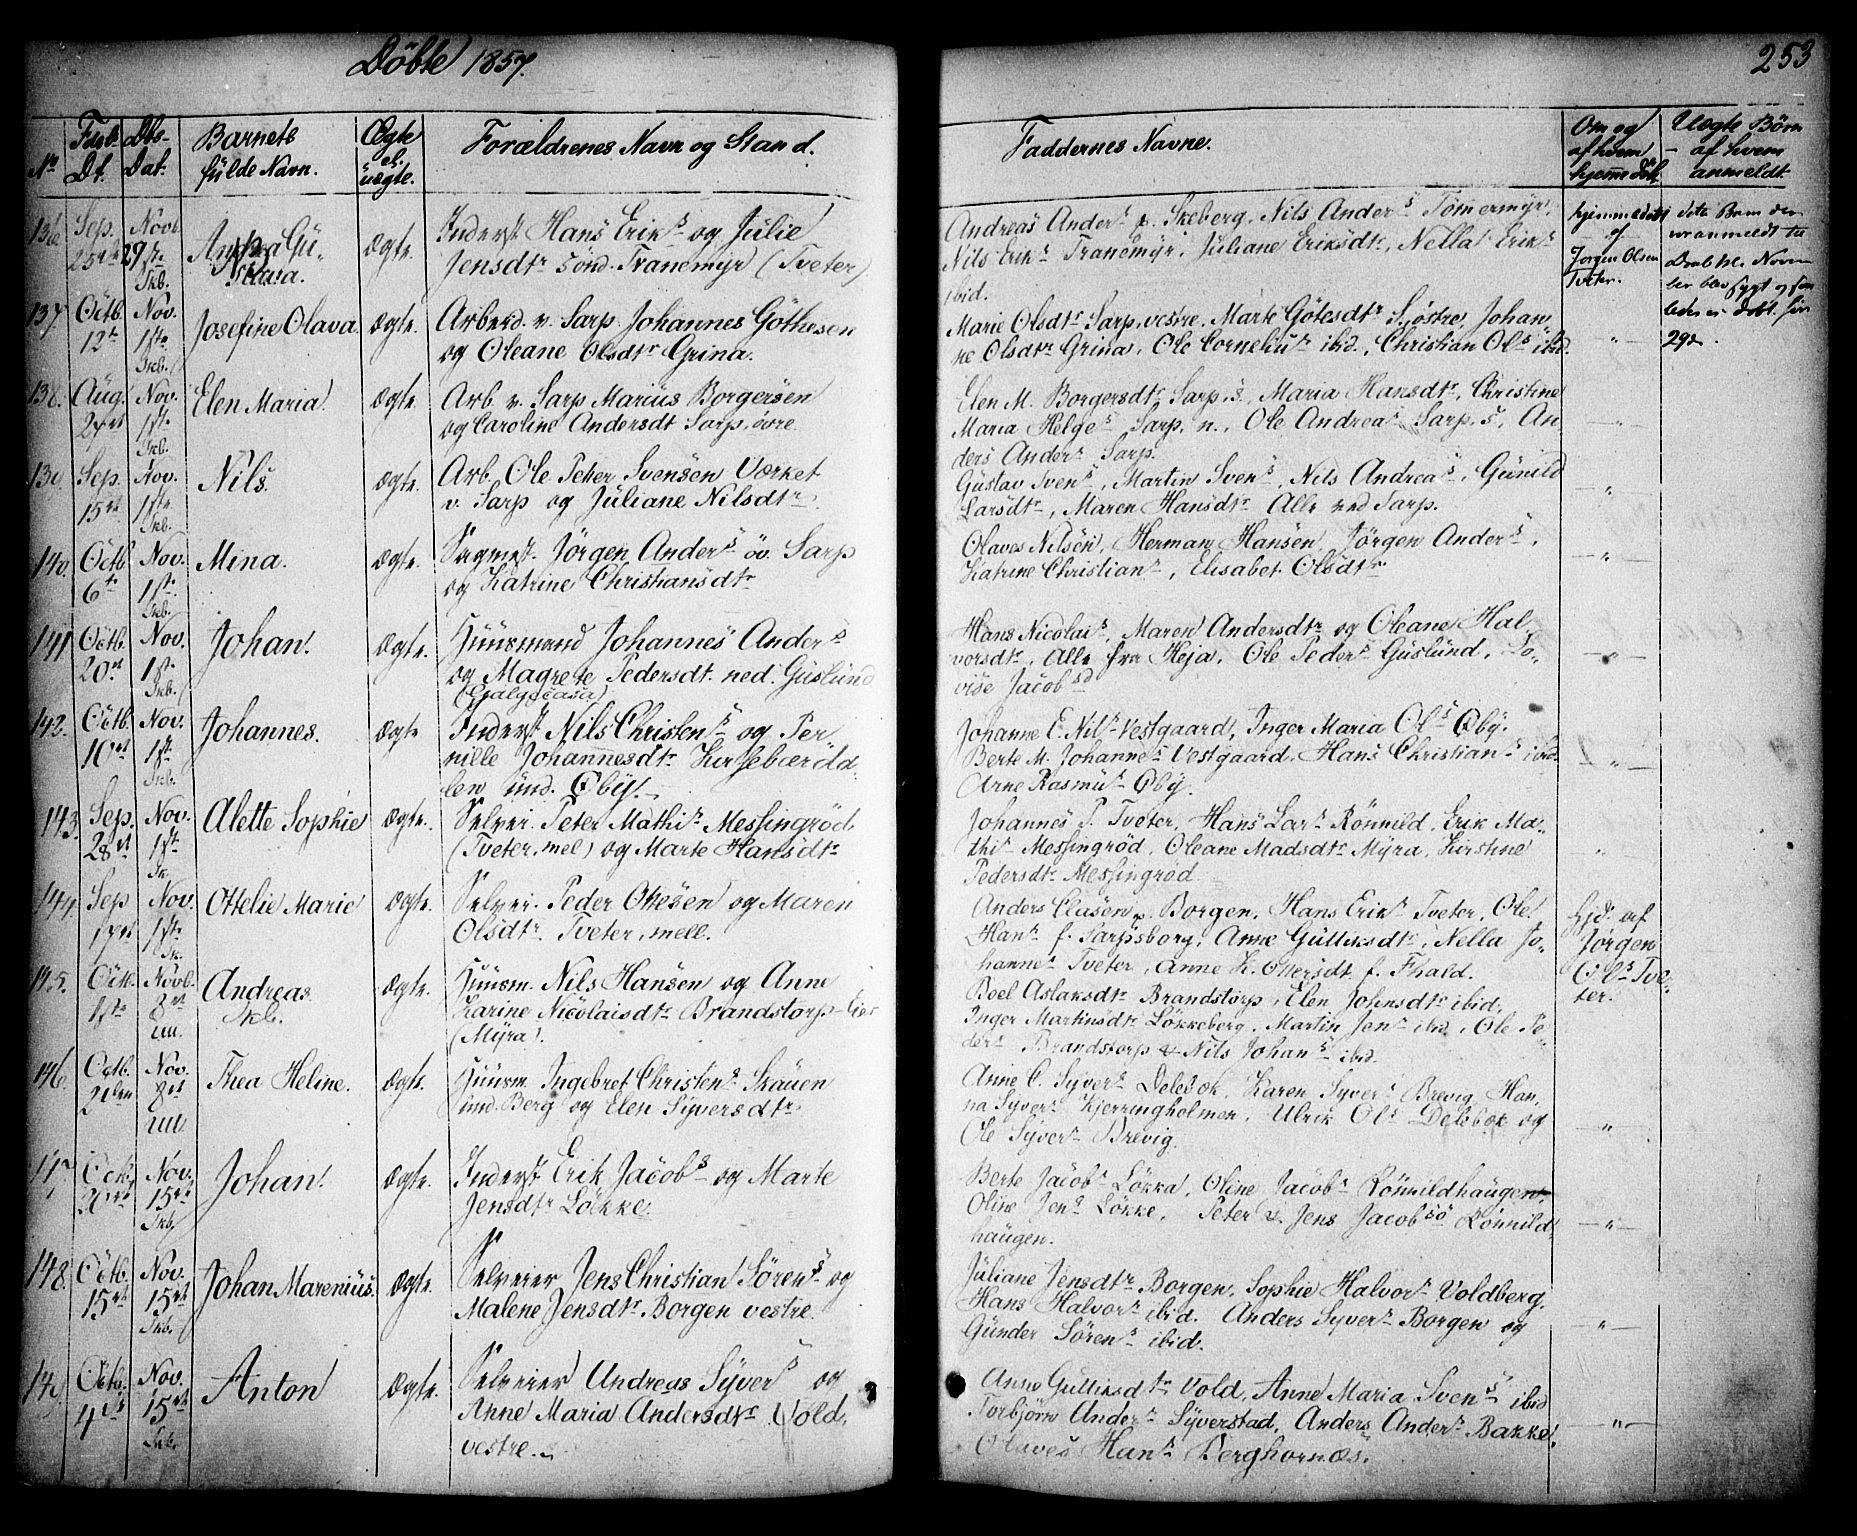 Döbte 1857.
253
No
Föds. Dt.
Dbs-Dat.
Barnets fulde Navn.
Ægte el. uægte.
Forældrenes Navn og Stand.
Faddernes Navne.
Om og af hvem hjemmedöbt
Uægte Börn - af hvem anmeldt
136. Sep. 25de Novb. 29de Skb.
Ægte.
Inderst Hans Eriks og Julie
Jensdtr sönd. Tranemyr (Tveter)
Andreas Anders p. Skeberg, Nils Anders Tömmermyr,
Nils Eriks Tranemyr, Juliane Eriksdtr, Nella Eriks
ibid.
hjemmedöbt
af
Jörgen Olsen
Tveter.
137. Octb. 12te Nov. 1ste Skb.
Josefine Olava
Ægte.
Arbeid. v. Sarp Johannes Göthesen
og Oleane Olsdtr Grina.
Marie Olsdtr Sarp, vestre, Marte Götesdtr Sjöstre, Johan
ne Olsdtr Grina, Ole Cornelius ibid., Christian Ols ibid.
29de.
138. Aug. Nov. 1ste Skb.
Elen Maria.
Ægte.
Arb v. Sarp Marius Borgersen
og Caroline Andersdt Sarp, övre.
Elen M. Borgersdtr Sarp. s., Maria Hansdtr, Christine
Maria Helges Sarp. n., Ole Andreas Sarp. s, An
ders Anders Sarp.
139. Sep. 15de Nov. 1ste Skb.
Nils.
Ægte.
Arb. Ole Peter Svensen Værket
v. Sarp og Juliane Nilsdtr.
Gustav Svens, Martin Svens, Nils Andreas, Gunild
Larsdtr, Maren Hansdtr Alle ved Sarp.
140. Octb 6te Nov. 1ste Skb.
Mina.
Ægte.
Sagmest. Jörgen Anders öv. Sarp
og Katrine Christiansdtr
Olaves Nilsen, Herman Hansen, Jörgen Anders,
Katrine Christians, Elisabet Olsdtr
141. Octb. 20de Nov. 1ste Skb.
Johan.
Ægte.
Huusmand Johannes Anders
og Magrete Pedersdt. ned. Guslund
(Galgecasa)
Hans Nicolais, Maren Andersdtr og Oleane Hal
vorsdtr, Alle fra Heja, Ole Peders Guslund, Lo-
vise Jacobsd
142. Octb. 10de Nov. 1ste Skb.
Johannes.
Ægte
Inderst Nils Christens og Per
nille Johannesdtr Kirsebærödda-
len und. Öby.
Johanne E. Nils Vestgaard, Inger Maria Ols Öby.
Berte M. Johannes Vestgaard, Hans Christians ibid.
Arne Rasmus Öby.
143. Sep. 28de Nov. 1ste Sk.
Alette Sophie
Ægte.
Selvei. Peter Mathis Messingröd
(Tveter, mel) og Marte Hansdtr
Johannes P. Tveter, Hans Lars Rönnild, Erik Ma-
this Messingröd, Oleane Madsdtr Myra, Kirstine
Pedersdtr Messingröd
144. Sep Nov. 1ste Sk.
Ottelie Marie
Ægte.
Selvei. Peder Ottesen og Maren
Olsdtr Tveter, mell.
Anders Clasen p. Borgen, Hans Eriks Tveter, Ole
Hans f. Sarpsborg, Anne Gulliksdtr, Nella Jo-
hannes Tveter, Anne K. Ottersdt f. Thald.
hjd. af
Jörgen
Ols Tve-
ter.
145. Octb. 1ste Novb. 8de Ull.
Andreas
Skb.
Ægte.
Huusm. Nils Hansen og Anne
Karine Nicolaisdtr Brandstorp-Eier
(Myra).
Boel Aslaksdtr Brandstorp, Elen Johnsdtr ibid,
Inger Martinsdtr Lökkeberg, Martin Jens ibid, Ole Pe-
ders Brandstorp & Nils Johans ibid.
146. Octb. Nov. 8de Ull
Thea Heline.
Ægte.
Huusm. Ingebret Christens Skauen
und. Berg og Elen Syversdtr
Anne C. Syvers Delebök, Karen Syvers Brevig, Han-
na Syvers Kjerringholmen, Ulrik Ols Delebök og
Ole Syvers Brevig.
147. Octb. Nov. 15de Skb.
Johan.
Ægte.
Inderst Erik Jacobs og Marte
Jensdtr Lökke.
Berte Jacobs Lökka, Oline Jacobs Rönnildhaugen,
Oline Jens Lökke, Peter & Jens Jacobs Rönnild
haugen.
148. Octb. 15de Nov. 15de Skb.
Johan Marenius.
Ægte.
Selveier Jens Christian Sörens og
Malene Jensdtr. Borgen vestre.
Juliane Jensdtr Borgen, Sophie Halvors Voldberg,
Hans Halvors ibid. Anders Syvers Borgen og
Gunder Sörens ibid.
149. Octb. 4de Nov. 15de Skb.
Anton
Ægte.
Selveier Andreas Syvers og
Anne Maria Andersdtr. Vold,
vestre.
Anne Gulliksdtr Vold, Anne Maria Svens ibid
Torbjörn Anders Syverstad, Anders Anders Bakke,
Olaves Hans Berghornæs.